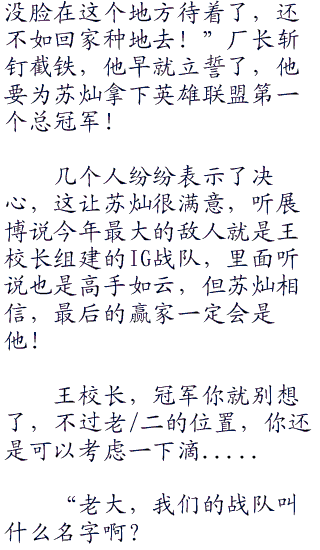 没脸在这个地方待着了，还
不如回家种地去！”厂长斩
钉截铁，他早就立誓了，他
要为苏灿拿下英雄联盟第一
个总冠军！
几个人纷纷表示了决
心，这让苏灿很满意，听展
博说今年最大的敌人就是王
校长组建的IG战队，里面听
说也是高手如云，但苏灿相
信，最后的赢家一定会是
他！
王校长，冠军你就别想
了，不过老/二的位置，你还
是可以考虑一下滴.....
“老大，我们的战队叫
什么名字啊？